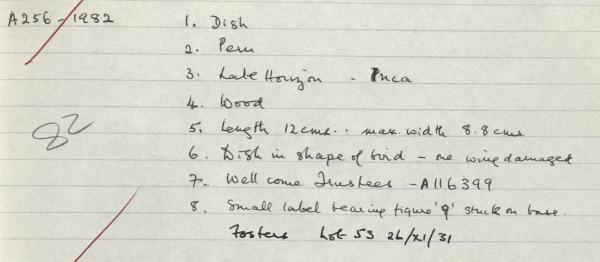 A256-1982
1. Dish
2. Peru
3. Late Horizon - Inca
4. Wood
5. Length 12 cms.. max. width 8.8 cms.
6. Dish in shape of bird - one wing damaged
82
7. Wellcome Trustees - A116399
8. Small label bearing figure '9' stuck on base.
Fosters Lot 53 26/XI/31